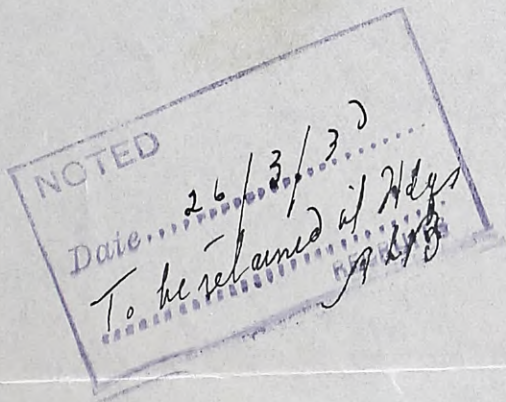 NOTED
Date.....26/3/30
To be retained at Hdqs